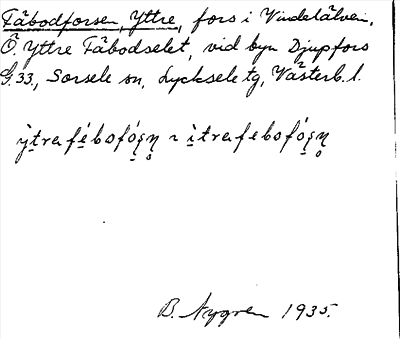 Fäbodforsen, Yttre, fors i Vindelälven,
Ö. Yttre Fäbodselet, vid byn Djupfors
G.33., Sorsele sn, Lycksele tg, Västerb. l.
B. Nygren 1935.